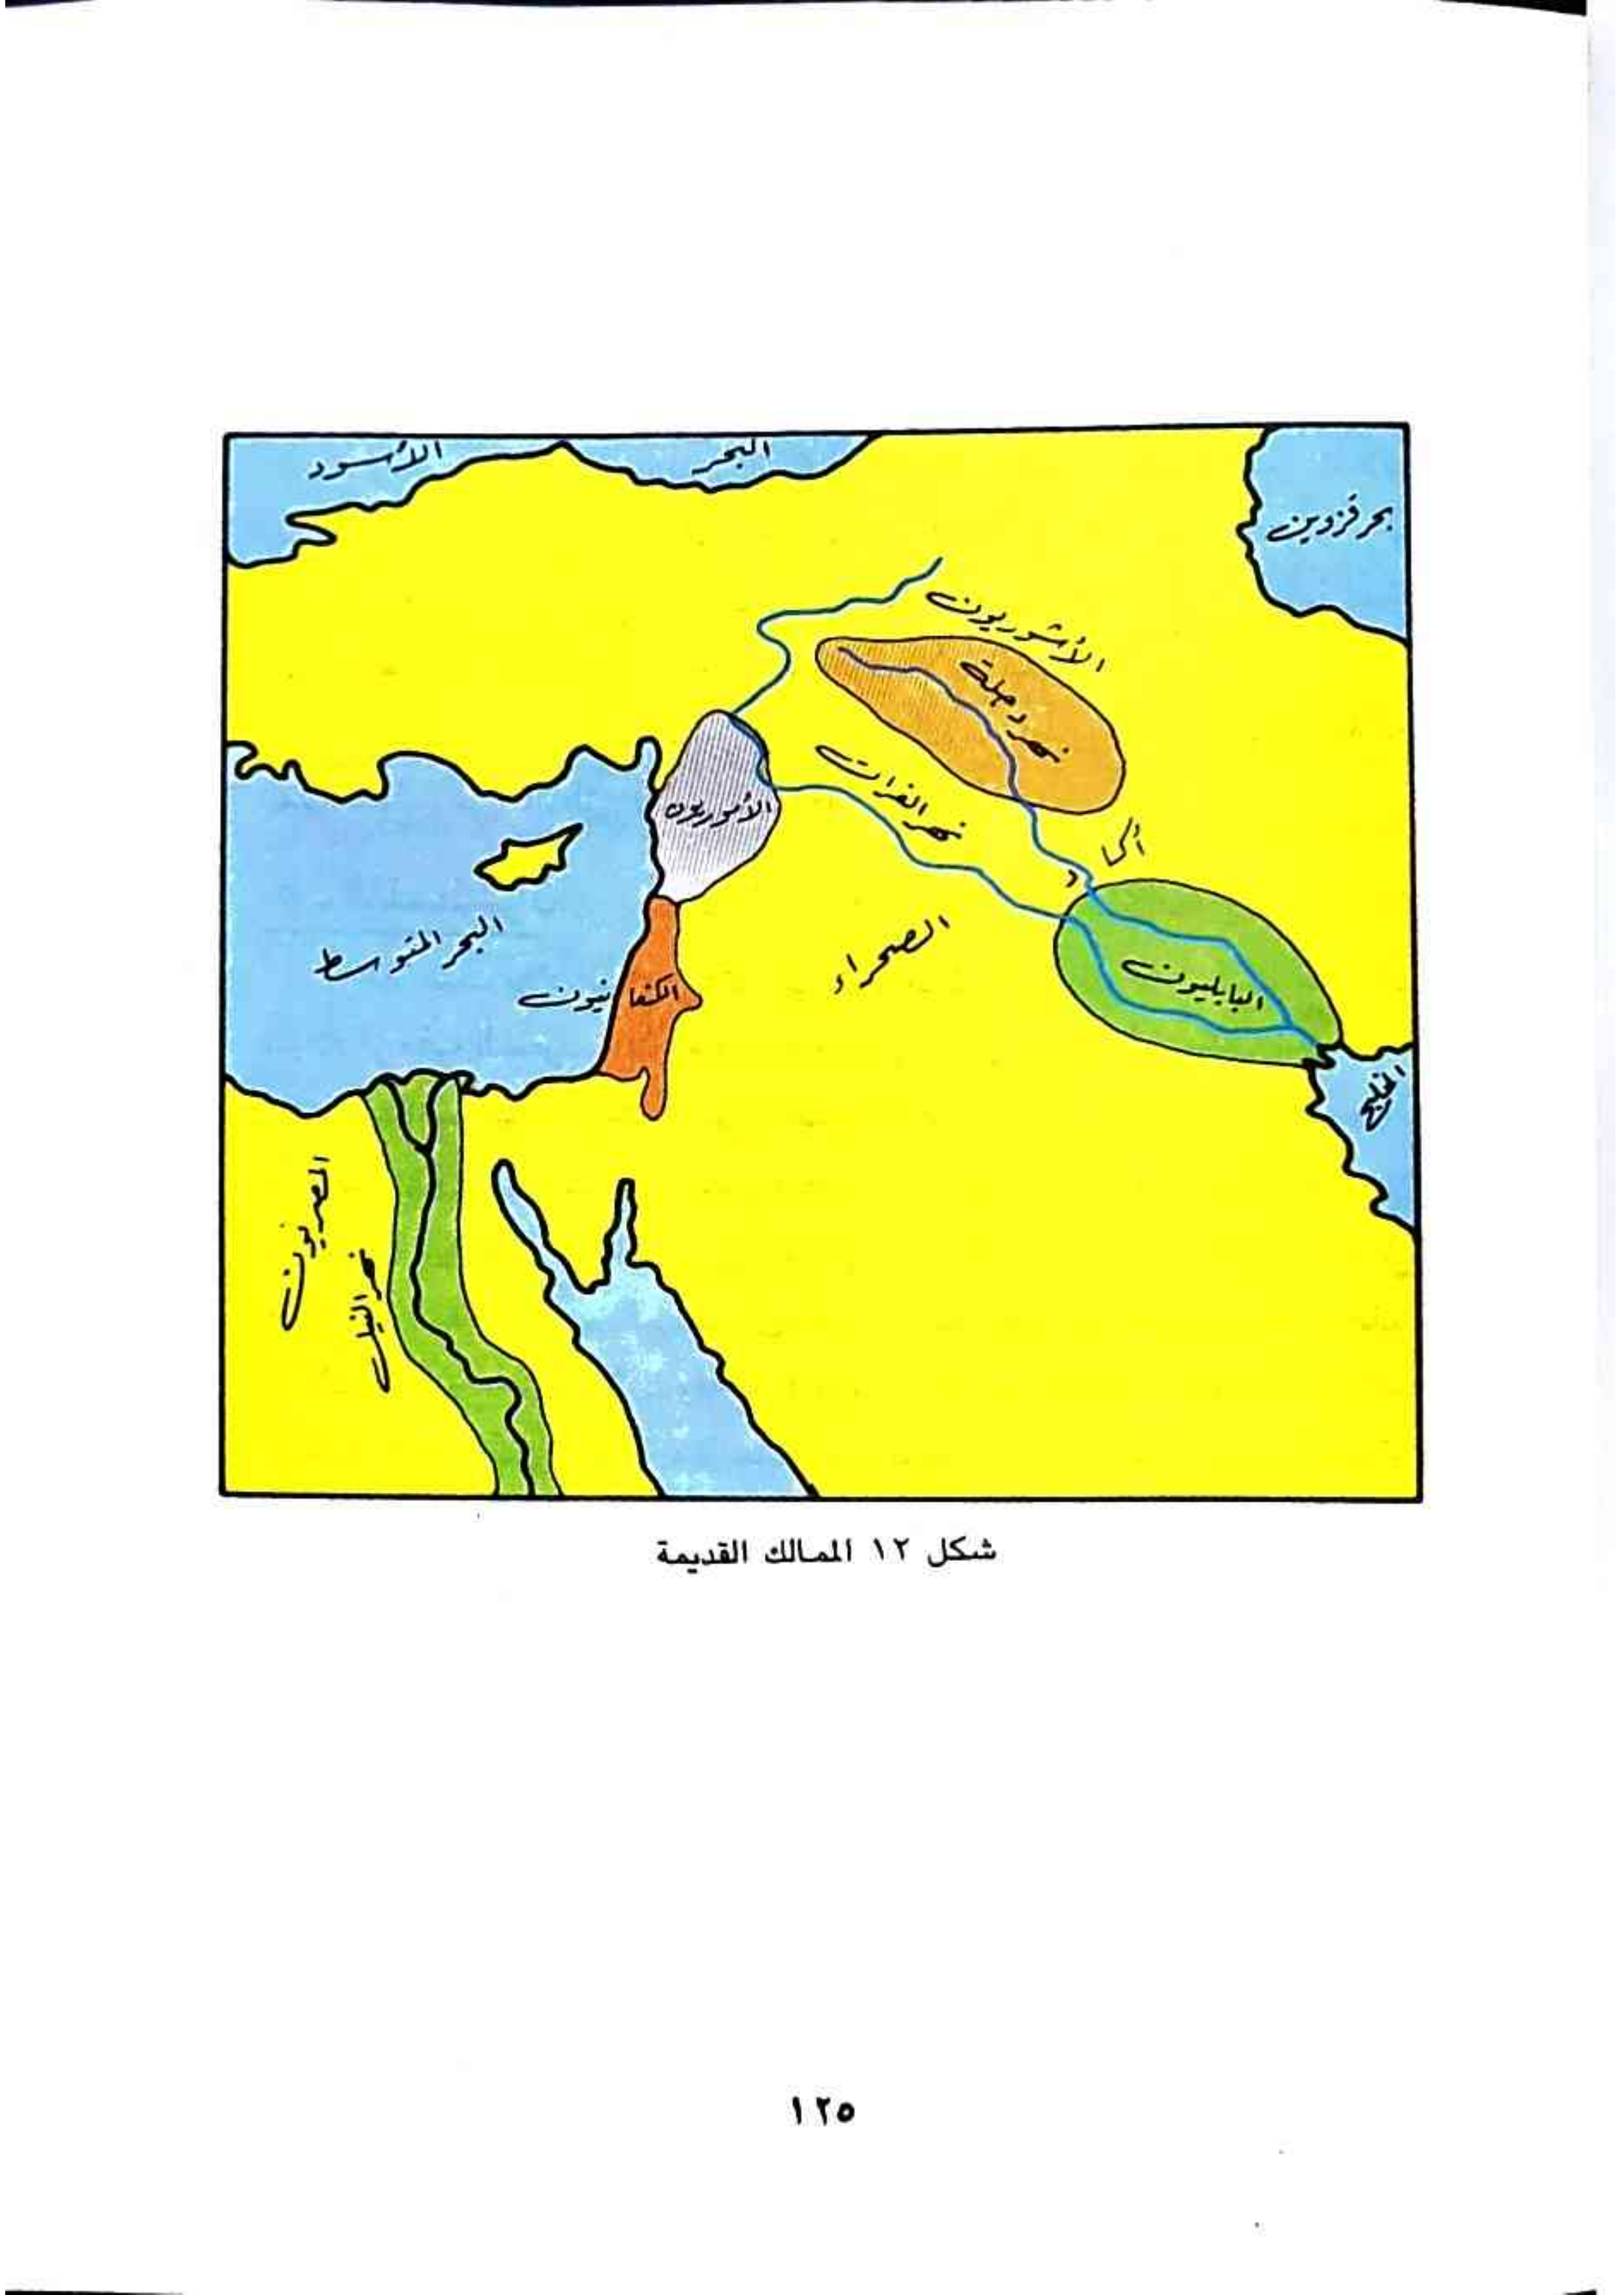 البحر الأسود
بحر قزوين
الأشوريون
نهر دجلة
نهر الفرات
الأموريون
أكاد
البحر المتوسط
الكنعانيون
الصحراء
البابليون
الخليج
المصريون
نهر النيل
شكل ١٢ الممالك القديمة
١٢٥